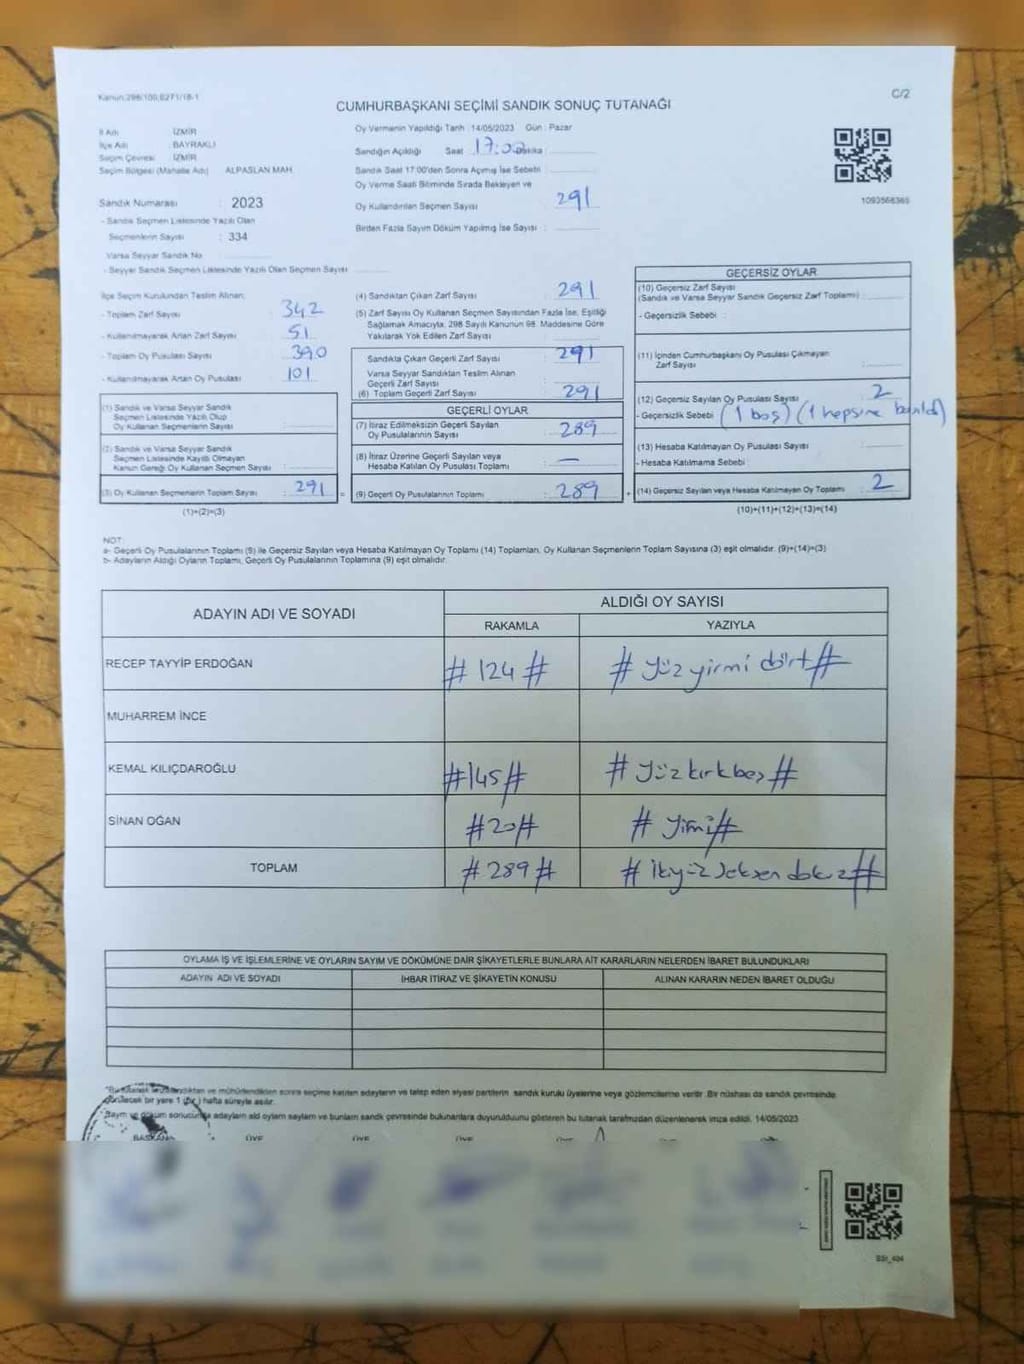 Kanun:298/100,6271/18-1
C/2
CUMHURBAŞKANI SEÇİMİ SANDIK SONUÇ TUTANAĞI
İl Adı İZMİR
İlçe Adı : BAYRAKLI
Seçim Çevresi İZMİR
Seçim Bölgesi (Mahalle Adı) ALPASLAN MAH.
Sandık Numarası : 2023
- Sandık Seçmen Listesinde Yazılı Olan
Seçmenlerin Sayısı : 334
Varsa Seyyar Sandık No
- Seyyar Sandık Seçmen Listesinde Yazılı Olan Seçmen Sayısı
Oy Vermenin Yapıldığı Tarih : 14/05/2023 Gün : Pazar
Sandığın Açıldığı Saat 17:00 Dakika :
Sandık Saat 17:00'den Sonra Açımış İse Sebebi :
Oy Verme Saati Bitiminde Sırada Bekleyen ve
Oy Kullandırılan Seçmen Sayısı 291
Birden Fazla Sayım Döküm Yapılmış İse Sayısı :
1093568365
İlçe Seçim Kurulundan Teslim Alınan;
- Toplam Zarf Sayısı : 342
- Kullanılmayarak Artan Zarf Sayısı : 51
- Toplam Oy Pusulası Sayısı : 390
- Kullanılmayarak Artan Oy Pusulası : 101
(1) Sandık ve Varsa Seyyar Sandık
Seçmen Listesinde Yazılı Olup
Oy Kullanan Seçmenlerin Sayısı :
(2) Sandık ve Varsa Seyyar Sandık
Seçmen Listesinde Kayıtlı Olmayan
Kanun Gereği Oy Kullanan Seçmen Sayısı :
(3) Oy Kullanan Seçmenlerin Toplam Sayısı : 291 =
(1)+(2)=(3)
(4) Sandıktan Çıkan Zarf Sayısı : 291
(5) Zarf Sayısı Oy Kullanan Seçmen Sayısından Fazla İse, Eşitliği
Sağlamak Amacıyla, 298 Sayılı Kanunun 98. Maddesine Göre
Yakılarak Yok Edilen Zarf Sayısı :
Sandıkta Çıkan Geçerli Zarf Sayısı : 291
Varsa Seyyar Sandıktan Teslim Alınan
Geçerli Zarf Sayısı :
(6) Toplam Geçerli Zarf Sayısı : 291
GEÇERLİ OYLAR
(7) İtiraz Edilmeksizin Geçerli Sayılan
Oy Pusulalarının Sayısı : 289
(8) İtiraz Üzerine Geçerli Sayılan veya
Hesaba Katılan Oy Pusulası Toplamı : —
(9) Geçerli Oy Pusulalarının Toplamı : 289 +
GEÇERSİZ OYLAR
(10) Geçersiz Zarf Sayısı
(Sandık ve Varsa Seyyar Sandık Geçersiz Zarf Toplamı) :
- Geçersizlik Sebebi :
(11) İçinden Cumhurbaşkanı Oy Pusulası Çıkmayan
Zarf Sayısı :
(12) Geçersiz Sayılan Oy Pusulası Sayısı : 2
- Geçersizlik Sebebi : (1 boş) (1 hepsine basıldı)
(13) Hesaba Katılmayan Oy Pusulası Sayısı :
- Hesaba Katılmama Sebebi :
(14) Geçersiz Sayılan veya Hesaba Katılmayan Oy Toplamı : 2
(10)+(11)+(12)+(13)=(14)
NOT:
a- Geçerli Oy Pusulalarının Toplamı (9) ile Geçersiz Sayılan veya Hesaba Katılmayan Oy Toplamı (14) Toplamları, Oy Kullanan Seçmenlerin Toplam Sayısına (3) eşit olmalıdır. (9)+(14)=(3)
b- Adayların Aldığı Oyların Toplamı, Geçerli Oy Pusulalarının Toplamına (9) eşit olmalıdır.
ADAYIN ADI VE SOYADI ALDIĞI OY SAYISI
RAKAMLA YAZIYLA
RECEP TAYYİP ERDOĞAN # 124 # # yüz yirmi dört #
MUHARREM İNCE
KEMAL KILIÇDAROĞLU #145# # yüz kırk beş #
SİNAN OĞAN #20# # yirmi #
TOPLAM # 289 # # ikiyüz seksen dokuz #
OYLAMA İŞ VE İŞLEMLERİNE VE OYLARIN SAYIM VE DÖKÜMÜNE DAİR ŞİKAYETLERLE BUNLARA AİT KARARLARIN NELERDEN İBARET BULUNDUKLARI
ADAYIN ADI VE SOYADI İHBAR İTİRAZ VE ŞİKAYETİN KONUSU ALINAN KARARIN NEDEN İBARET OLDUĞU
sonra seçime katılan adayların ve talep eden siyasi partilerin sandık kurulu üyelerine veya gözlemcilerine verilir. Bir nüshası da sandık çevresinde
görülecek bir yere 1 (bir) hafta süreyle asılır.
Sayım ve döküm sonucunda adayların ald oyların sayların ve bunların sandık çevresinde bulunanlara duyurulduunu gösteren bu tutanak tarafımızdan düzenlenerek imza edildi. 14/05/2023
BAŞKAN ÜYE ÜYE ÜYE ÜYE ÜYE